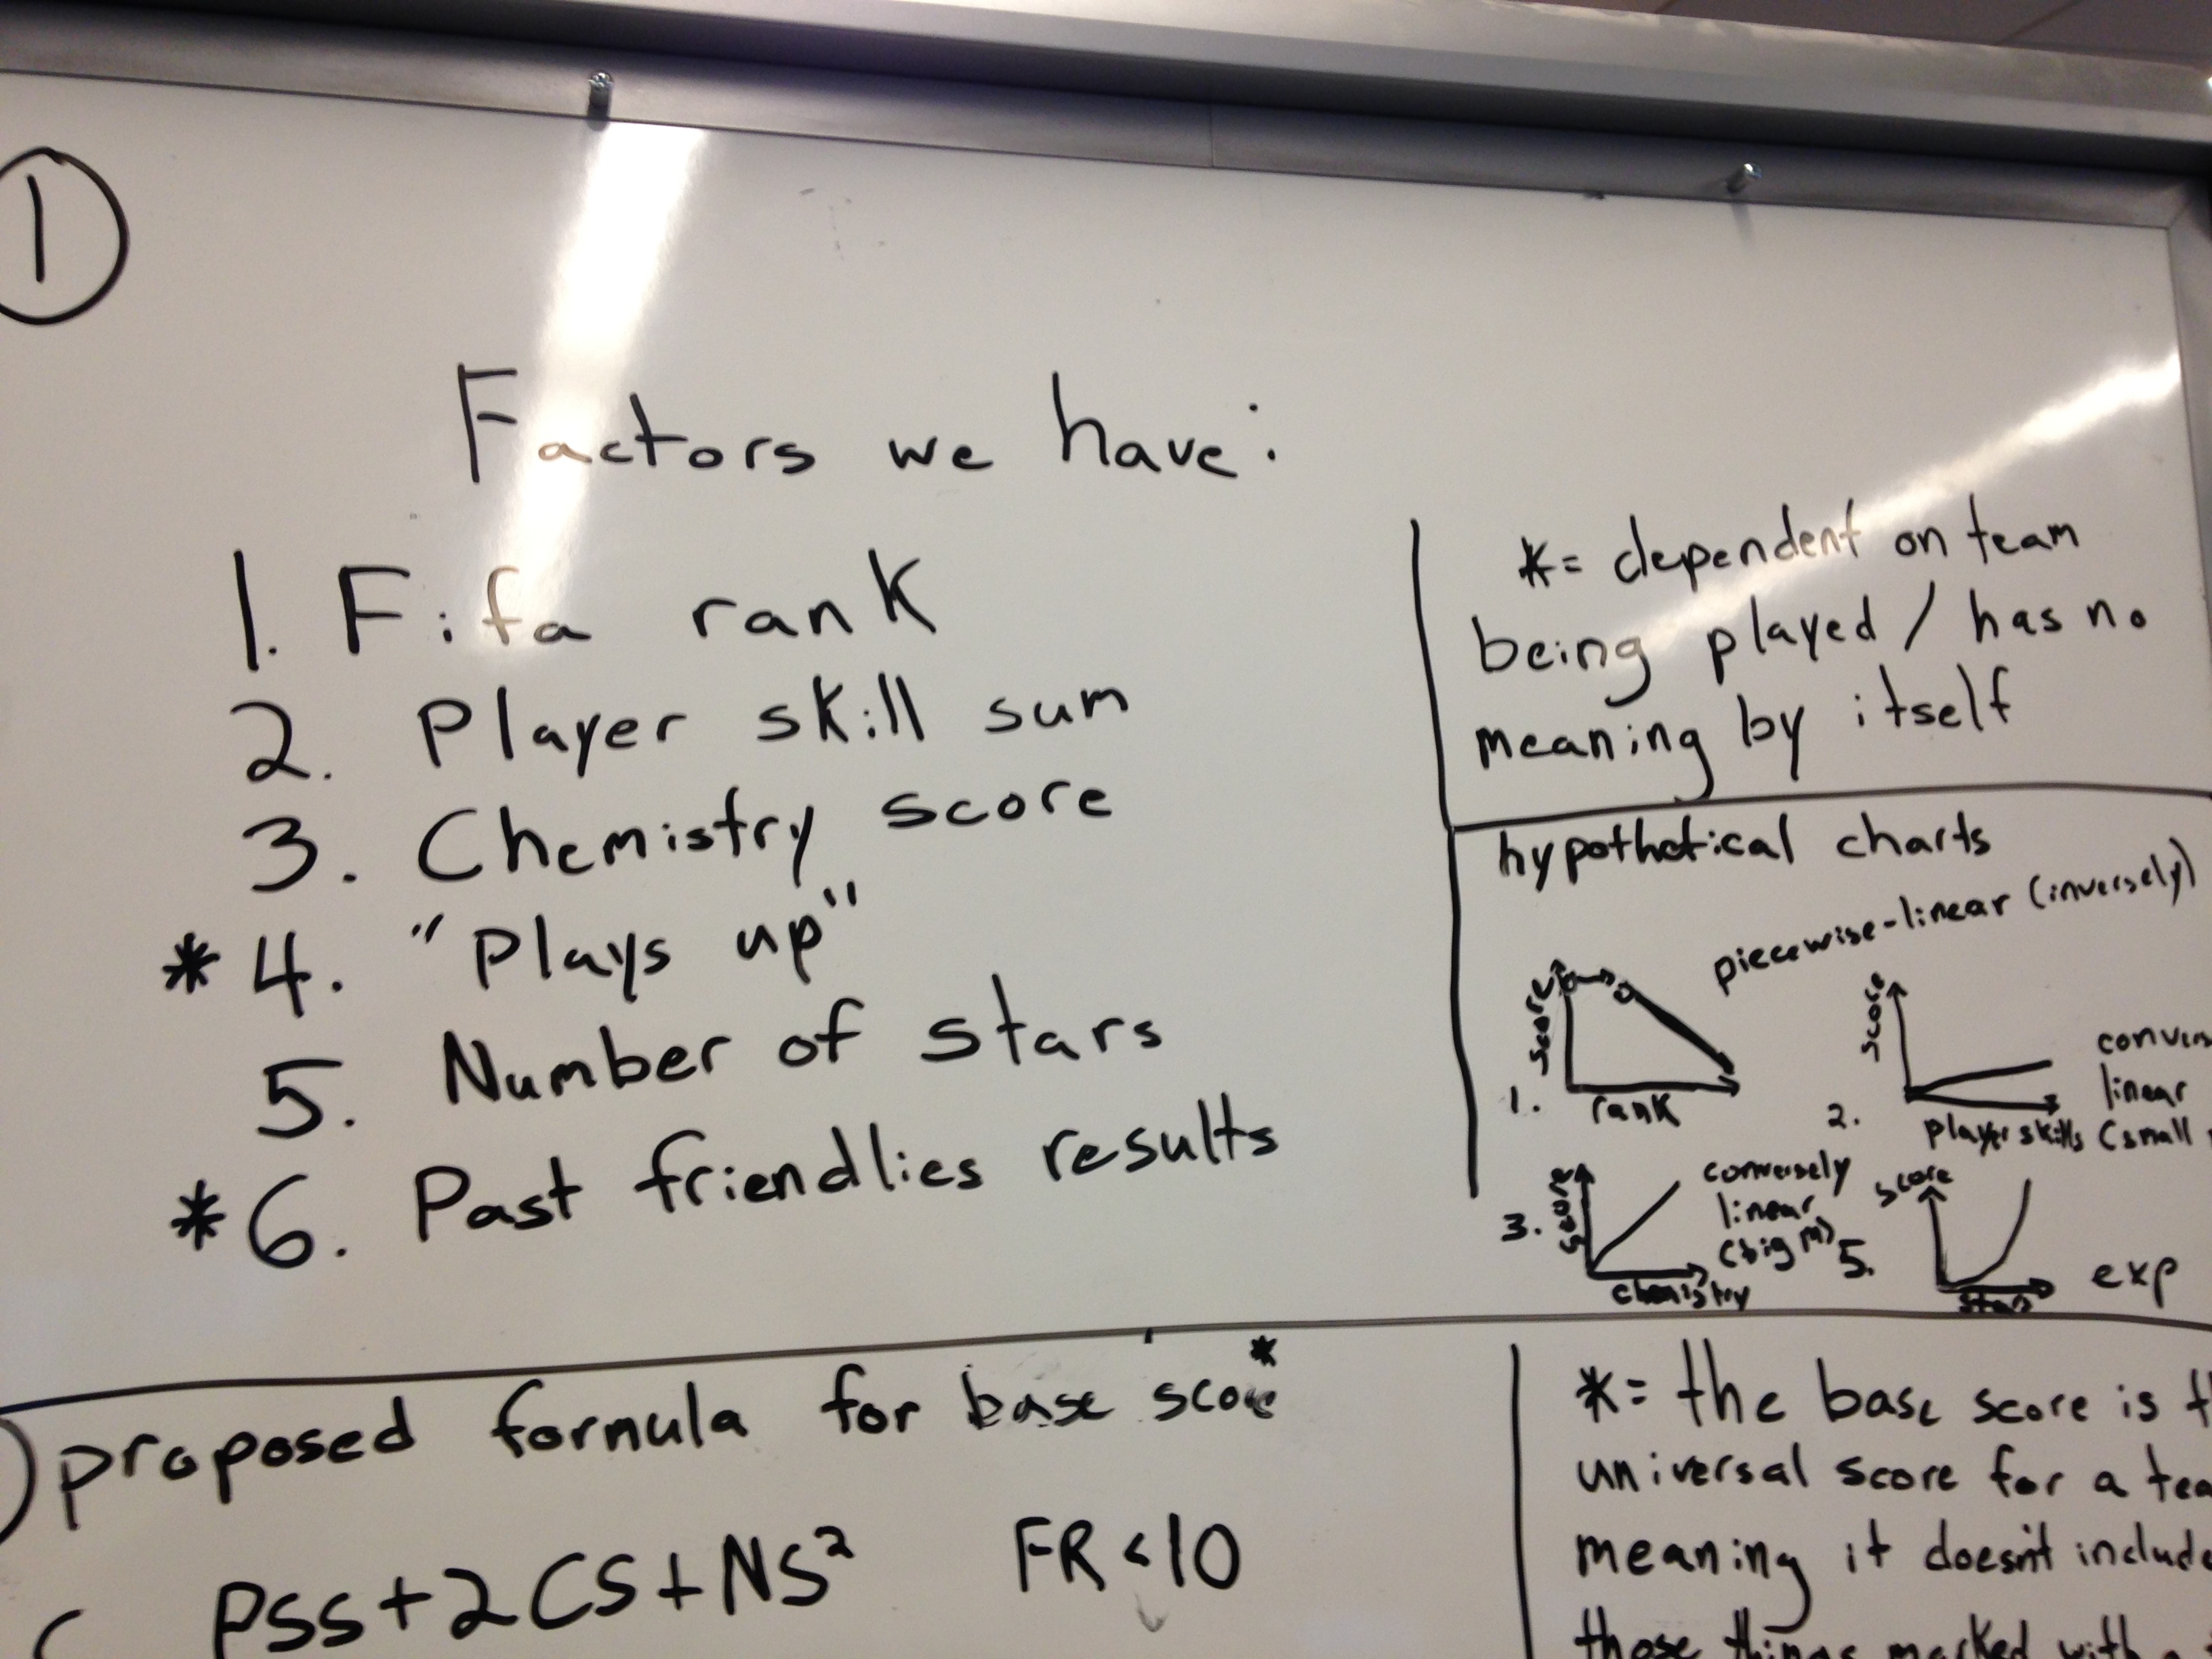 1
Factors we have:
1. Fifa rank
2. Player skill sum
3. Chemistry score
* 4. "Plays up"
5. Number of stars
* 6. Past friendlies results
*= dependent on team
being played / has no
meaning by itself
hypothetical charts
piecewise-linear (inversely)
score
1. rank
score
linear
2. player skills (small
score
conversely
linear
(big m)
3. chemistry
score
5. exp
stars
proposed formula for base score*
PSS+2CS+NS² FR<10
*= the base score is
universal score for a
meaning it doesn't include
those things marked with a